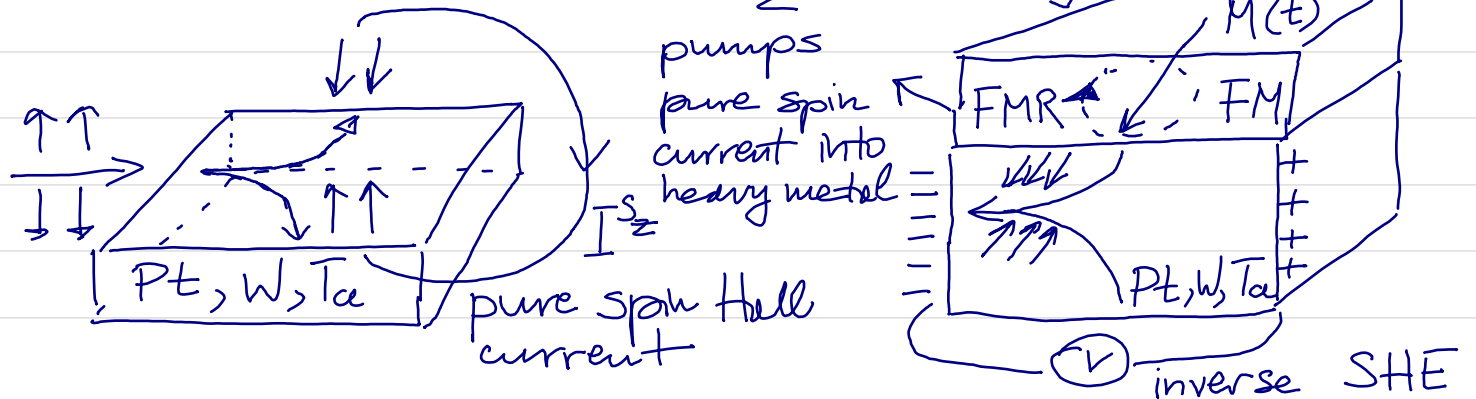 Pt, W, Ta
I^{S_z}
pure spin Hall
current
pumps
pure spin
current into
heavy metal
M(t)
FMR
FM
+
+
+
+
Pt, W, Ta
V
inverse SHE